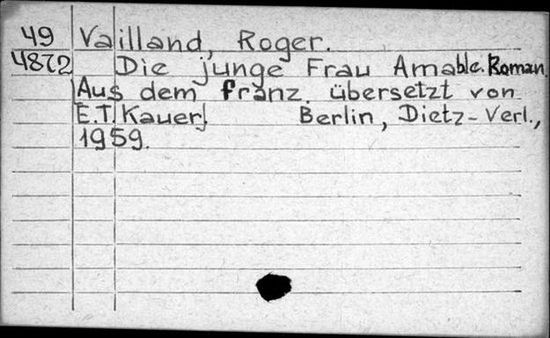 49 Vailland, Roger.
4872 Die junge Frau Amable. Roman.
Aus dem franz. übersetzt von
E.T. Kauer. Berlin, Dietz-Verl.,
1959.